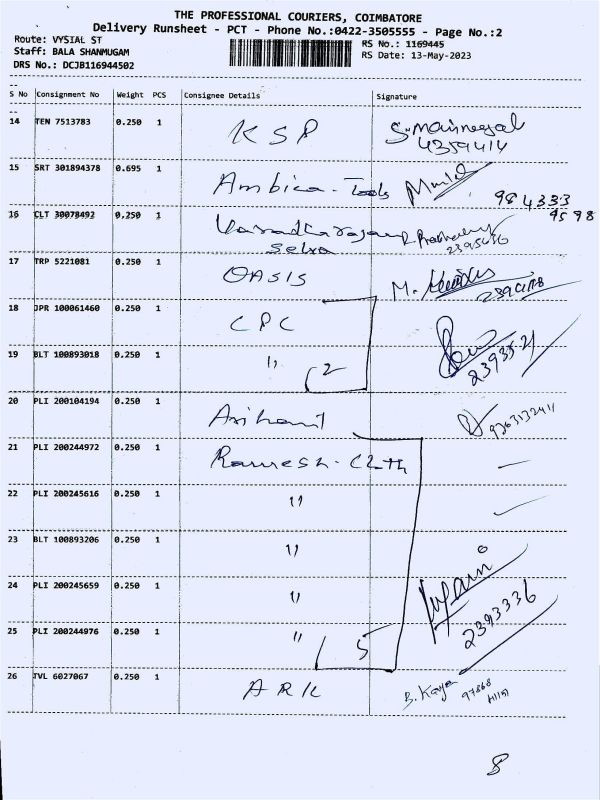 THE PROFESSIONAL COURIERS, COIMBATORE
Delivery Runsheet - PCT - Phone No.:0422-3505555 - Page No.:2
Route: VYSIAL ST
RS No.: 1169445
Staff: BALA SHANMUGAM
RS Date: 13-May-2023
DRS No.: DCJB116944502
S No Consignment No Weight PCS Consignee Details Signature
14 TEN 7513783 0.250 1 KSP
4359414
15 SRT 301894378 0.695 1 Ambica - Tools
984333
9598
16 CLT 30078492 0.250 1 Varadharajan
Selva
2395656
17 TRP 5221081 0.250 1 OASIS M.
18 JPR 100061460 0.250 1 CPC
19 BLT 100893018 0.250 1 " 2 2393521
20 PLI 200104194 0.250 1 Arihant
21 PLI 200244972 0.250 1 Ramesh - Cloth
22 PLI 200245616 0.250 1 "
23 BLT 100893206 0.250 1 "
24 PLI 200245659 0.250 1 " 2393336
25 PLI 200244976 0.250 1 " 5
26 TVL 6027067 0.250 1 ARK B. Kaya 97868
8